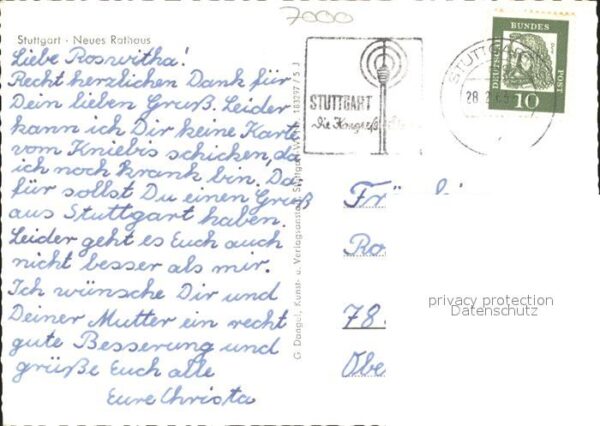 7000
Stuttgart · Neues Rathaus
Liebe Roswitha!
Recht herzlichen Dank für
Dein lieben Gruß. Leider
kann ich Dir keine Karte
vom Kniebis schicken, da
ich noch krank bin. Da-
für sollst Du einen Gruß
aus Stuttgart haben.
Leider geht es Euch auch
nicht besser als mir.
Ich wünsche Dir und
Deiner Mutter ein recht
gute Besserung und
grüße Euch alle
Eure Christa
G. Dangel, Kunst- u. Verlagsanstalt, Stuttgart
STUTTGART
Die Kongreß
STUTTGART
28
DEUTSCHE
BUNDES
POST
10
Frä
Ro
78
Obe
privacy protection
Datenschutz